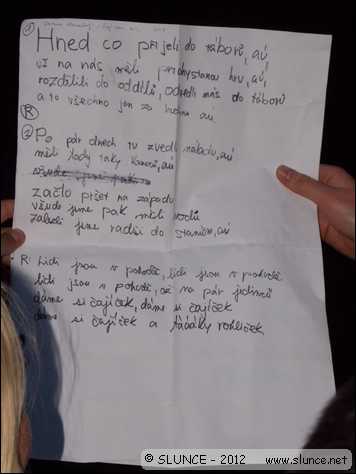 ①
Hned co přijeli do táborů, aú
už na nás měli přichystanou hru, aú,
rozdělili do oddílů, odvedli nás do táborů
a to všechno jen za hodinu aú
Ⓡ
② Po pár dnech tu zvedli náladu, aú
měli lady taky aú
začlo pršet na západu
všude jsme pak měli vodu
zalezli jsme radši do stanů, aú
R: Lidi jsou v pohodě, lidi jsou v pohodě
lidi jsou v pohodě, až na pár jedinců
dáme si čajíček, dáme si čajíček
dáme si čajíček a ťábáky rohlíček
© SLUNCE - 2012 www.slunce.net